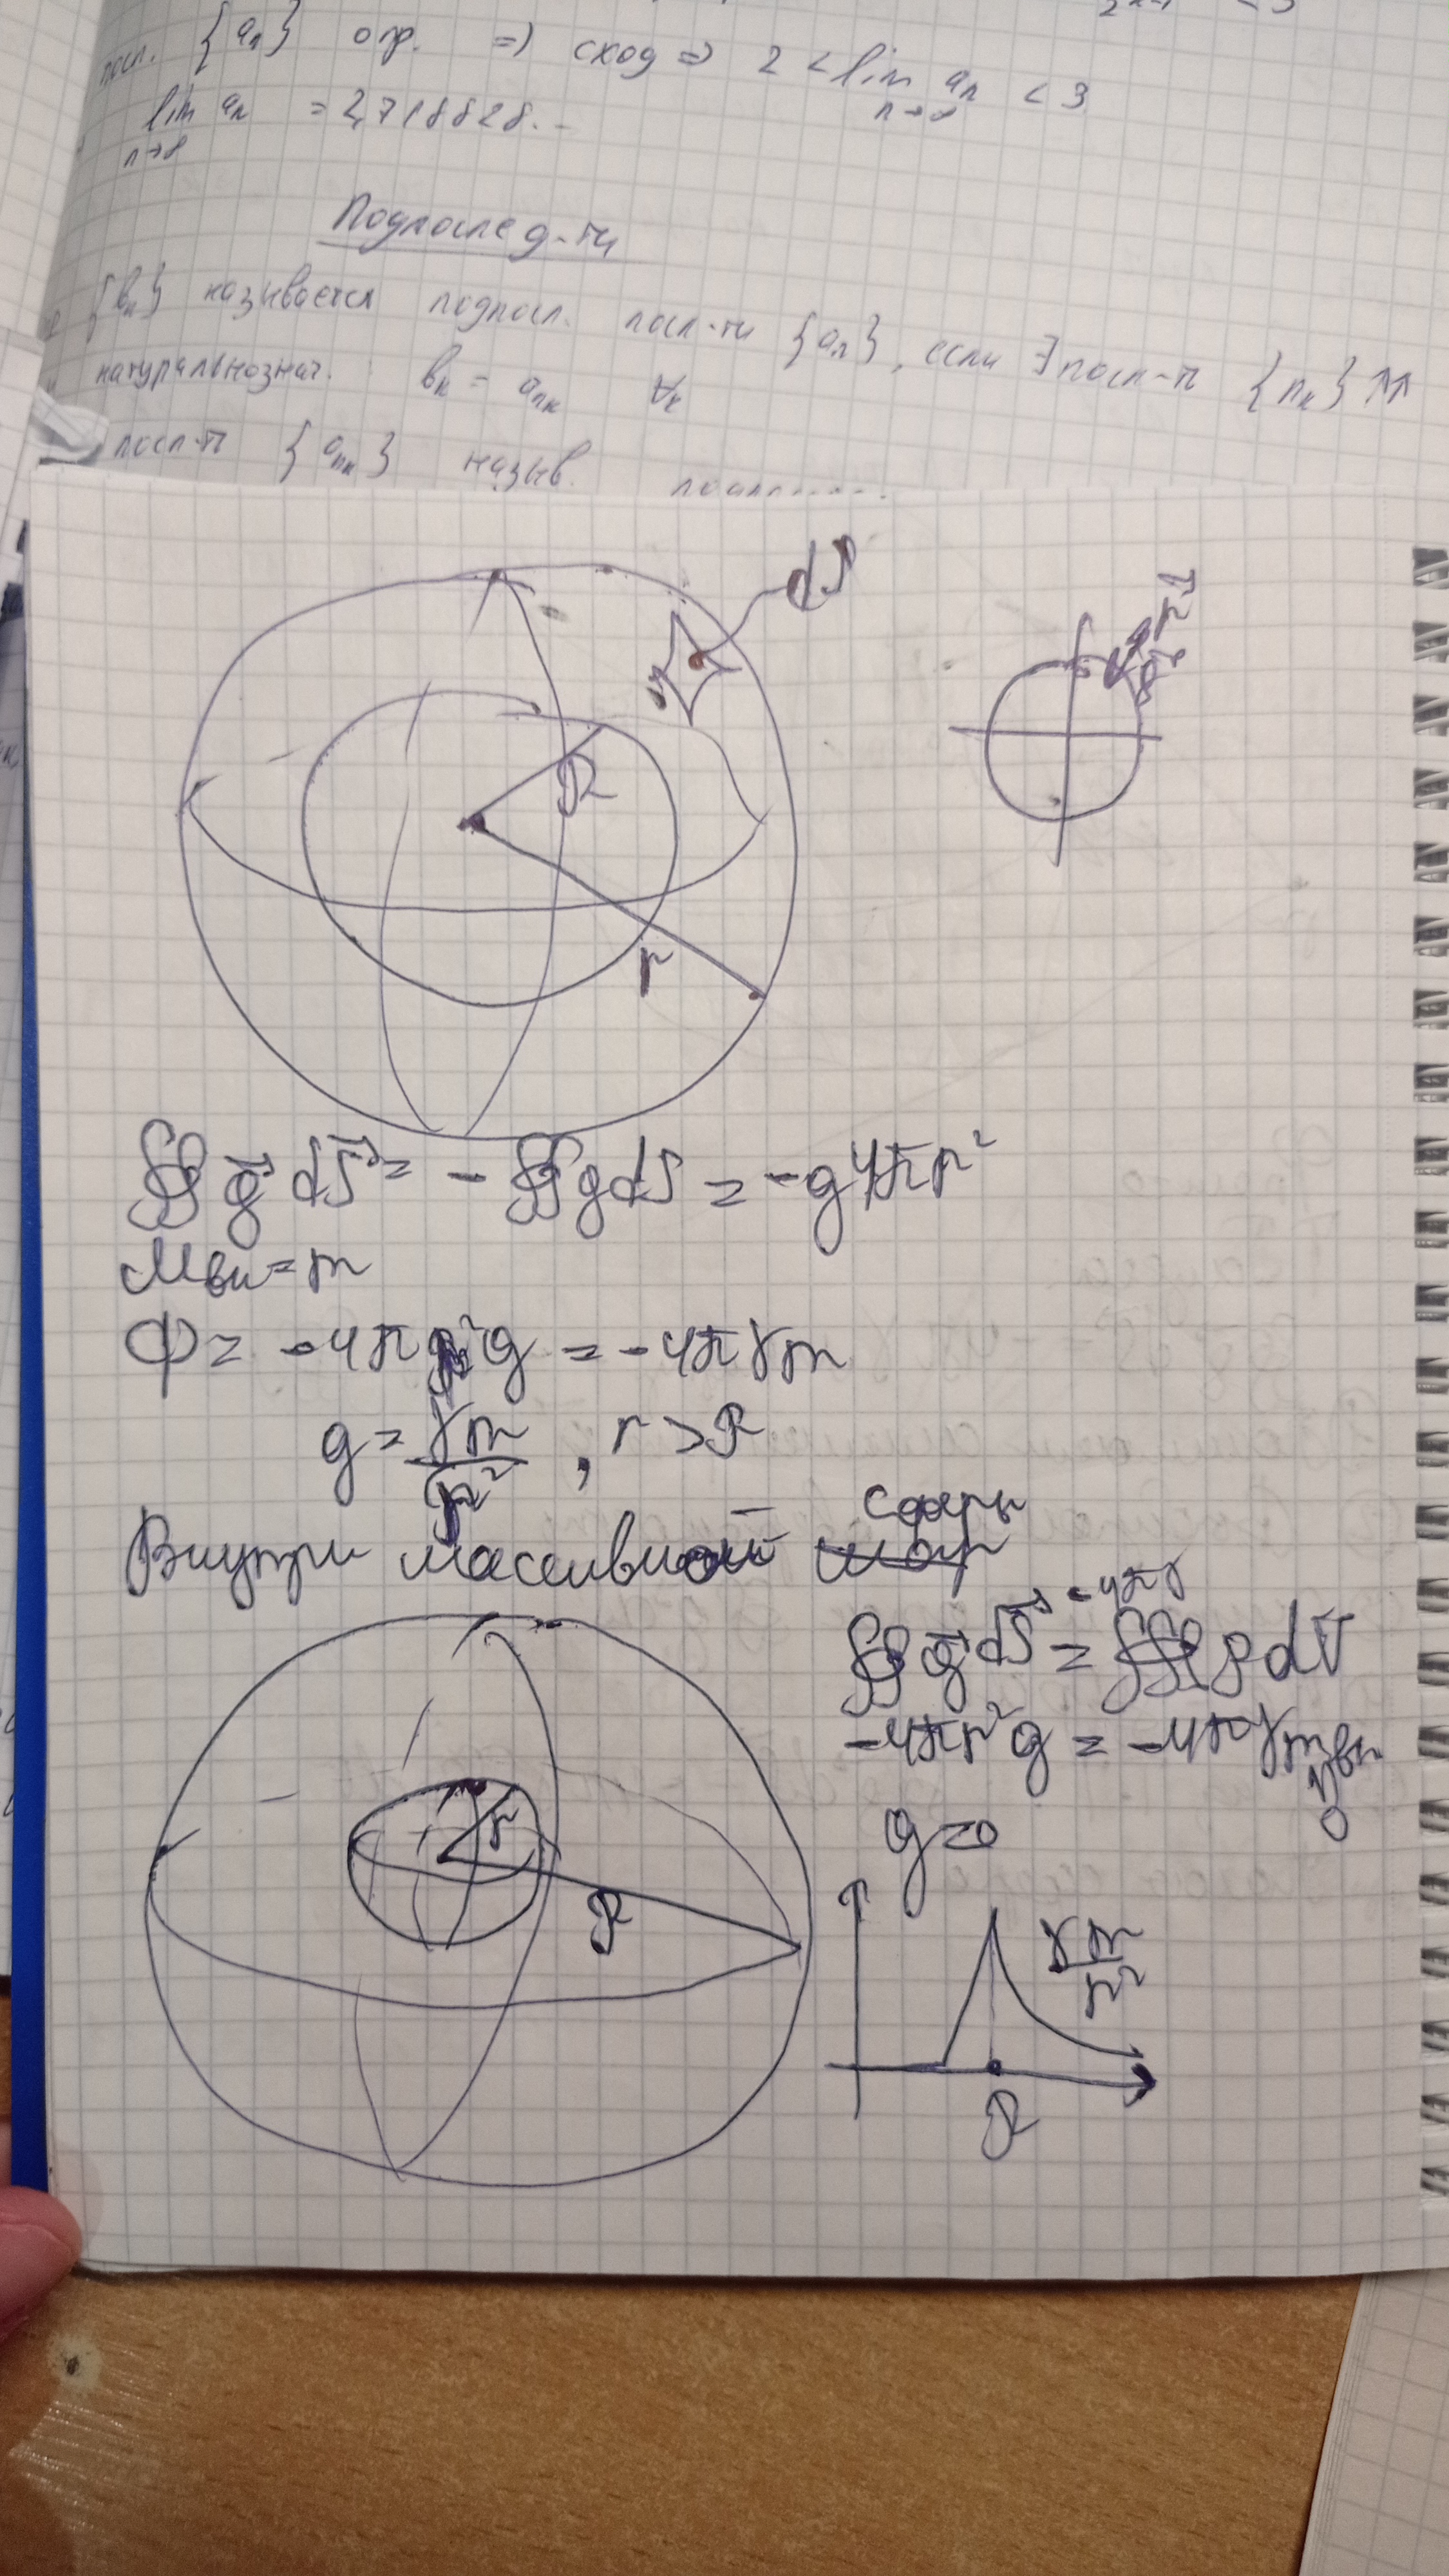 посл. {aₙ} огр. ⇒ сход ⇒ 2 < lim aₙ < 3
n→∞
lim aₙ = 2,718828...
n→∞
Подпослед-ти
{bₖ} называется подпосл. посл-ти {aₙ}, если ∃ посл-ть {nₖ} ↑↑
натуральнознач. : bₖ = aₙₖ ∀k
посл-ть {aₙₖ} назыв.
dS
R
r
∯ g⃗ dS⃗ = - ∯ g dS = -g4πr²
Mвн = m
Ф = -4πr²g = -4πγm
g = γm/r² , r > R
Внутри массивной сферы
∯ g⃗ dS⃗ = -4πγ ∭ ρdV
-4πr²g = -4πγmвн
0
g=0
r
R
γm/r²
R